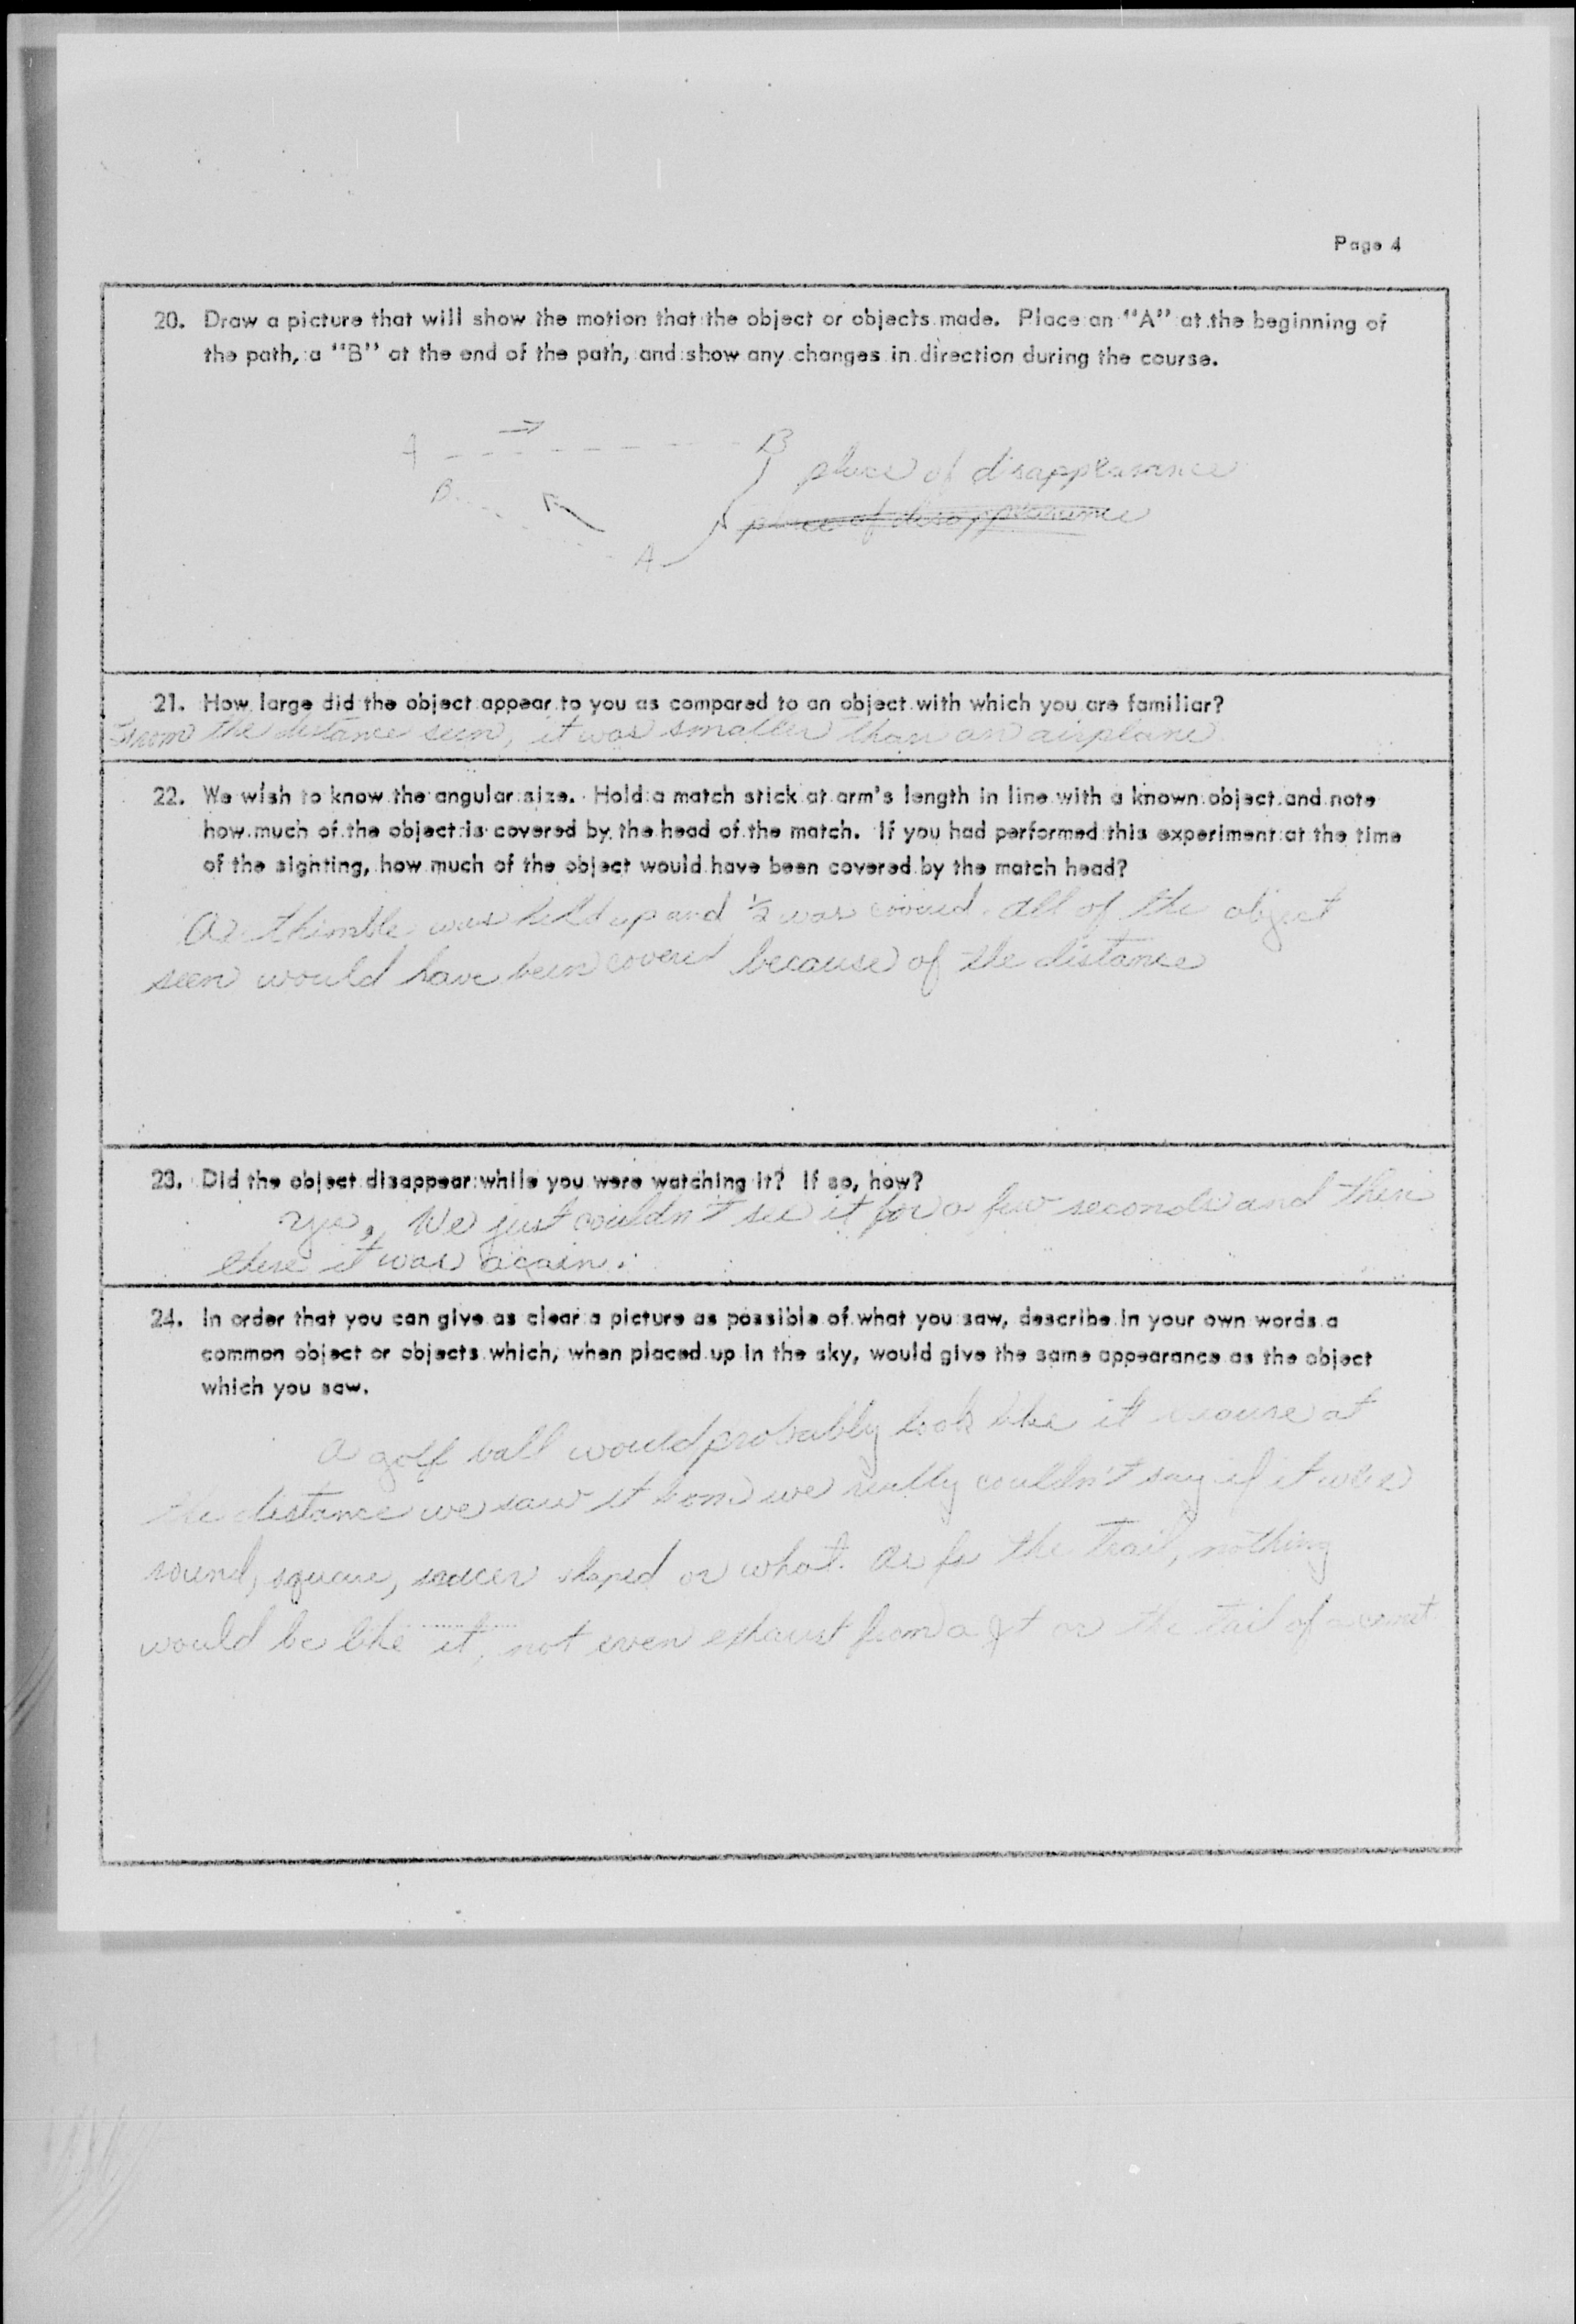 Page 4
20. Draw a picture that will show the motion that the object or objects made. Place an "A" at the beginning of
the path, a "B" at the end of the path, and show any changes in direction during the course.
A B
place of disappearance
B
place of disappearance
A
21. How large did the object appear to you as compared to an object with which you are familiar?
From the distance seen, it was smaller than an airplane.
22. We wish to know the angular size. Hold a match stick at arm's length in line with a known object and note
how much of the object is covered by the head of the match. If you had performed this experiment at the time
of the sighting, how much of the object would have been covered by the match head?
A thimble was held up and ½ was covered. All of the object
seen would have been covered because of the distance
23. Did the object disappear while you were watching it? If so, how?
Yes, We just couldn't see it for a few seconds and then
there it was again.
24. In order that you can give as clear a picture as possible of what you saw, describe in your own words a
common object or objects which, when placed up in the sky, would give the same appearance as the object
which you saw.
A golf ball would probably look like it because at
the distance we saw it from we really couldn't say if it were
round, square, saucer shaped or what. As for the trail, nothing
would be like it, not even exhaust from a jet or the tail of a comet